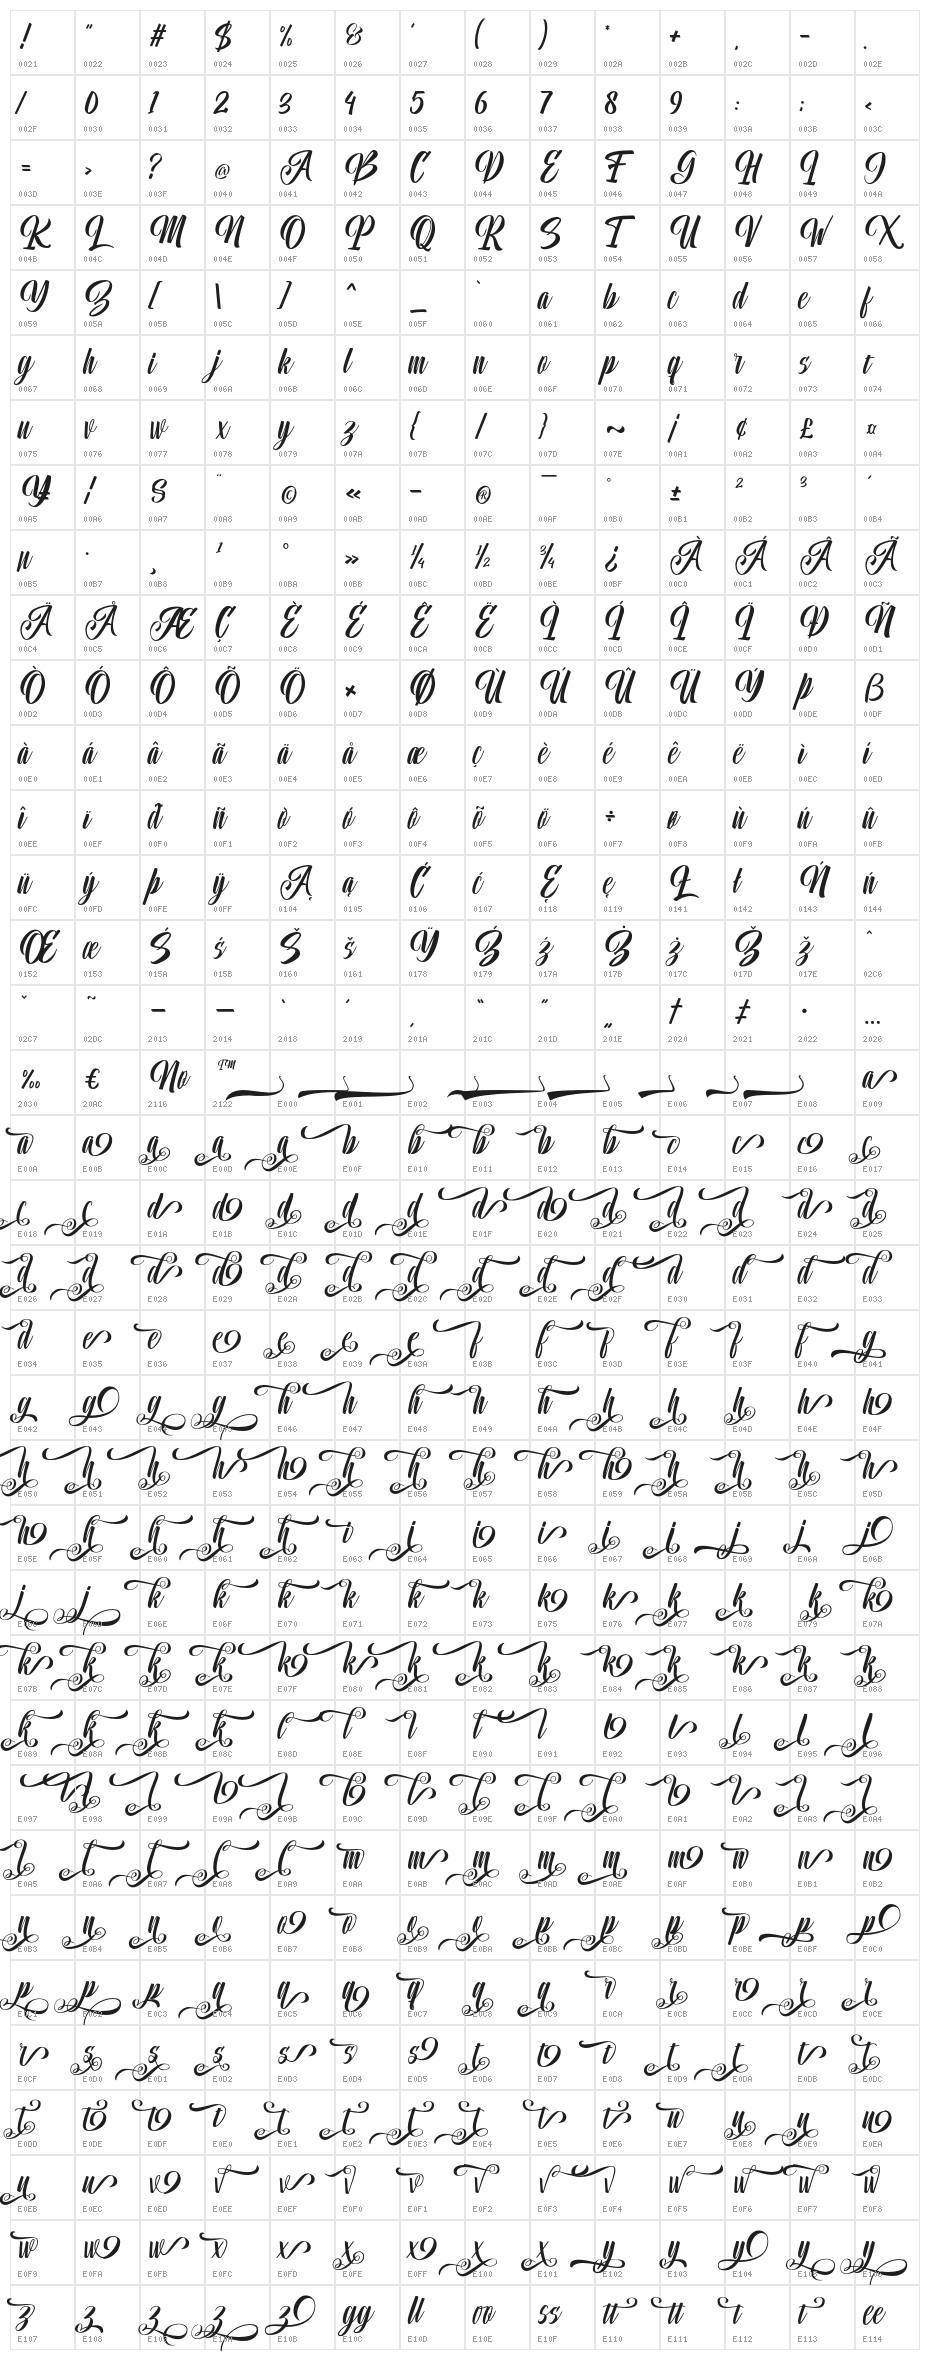 ! " # $ % & ' ( ) * + , - .
0021 0022 0023 0024 0025 0026 0027 0028 0029 002A 002B 002C 002D 002E
/ 0 1 2 3 4 5 6 7 8 9 : ; <
002F 0030 0031 0032 0033 0034 0035 0036 0037 0038 0039 003A 003B 003C
= > ? @ A B C D E F G H I J
003D 003E 003F 0040 0041 0042 0043 0044 0045 0046 0047 0048 0049 004A
K L M N O P Q R S T U V W X
004B 004C 004D 004E 004F 0050 0051 0052 0053 0054 0055 0056 0057 0058
Y Z [ \ ] ^ _ ` a b c d e f
0059 005A 005B 005C 005D 005E 005F 0060 0061 0062 0063 0064 0065 0066
g h i j k l m n o p q r s t
0067 0068 0069 006A 006B 006C 006D 006E 006F 0070 0071 0072 0073 0074
u v w x y z { | } ~ ¡ ¢ £ ¤
0075 0076 0077 0078 0079 007A 007B 007C 007D 007E 00A1 00A2 00A3 00A4
¥ ¦ § ¨ © « - ® ¯ ° ± ² ³ ´
00A5 00A6 00A7 00A8 00A9 00AB 00AD 00AE 00AF 00B0 00B1 00B2 00B3 00B4
µ · ¸ ¹ º » ¼ ½ ¾ ¿ À Á Â Ã
00B5 00B7 00B8 00B9 00BA 00BB 00BC 00BD 00BE 00BF 00C0 00C1 00C2 00C3
Ä Å Æ Ç È É Ê Ë Ì Í Î Ï Ð Ñ
00C4 00C5 00C6 00C7 00C8 00C9 00CA 00CB 00CC 00CD 00CE 00CF 00D0 00D1
Ò Ó Ô Õ Ö × Ø Ù Ú Û Ü Ý Þ ß
00D2 00D3 00D4 00D5 00D6 00D7 00D8 00D9 00DA 00DB 00DC 00DD 00DE 00DF
à á â ã ä å æ ç è é ê ë ì í
00E0 00E1 00E2 00E3 00E4 00E5 00E6 00E7 00E8 00E9 00EA 00EB 00EC 00ED
î ï ð ñ ò ó ô õ ö ÷ ø ù ú û
00EE 00EF 00F0 00F1 00F2 00F3 00F4 00F5 00F6 00F7 00F8 00F9 00FA 00FB
ü ý þ ÿ Ą ą Ć ć Ę ę Ł ł Ń ń
00FC 00FD 00FE 00FF 0104 0105 0106 0107 0118 0119 0141 0142 0143 0144
Œ œ Ś ś Š š Ÿ Ź ź Ż ż Ž ž ˆ
0152 0153 015A 015B 0160 0161 0178 0179 017A 017B 017C 017D 017E 02C6
ˇ ˜ – — ‘ ’ ‚ “ ” „ † ‡ • …
02C7 02DC 2013 2014 2018 2019 201A 201C 201D 201E 2020 2021 2022 2026
‰ € No ™ a
2030 20AC 2116 2122 E000 E001 E002 E003 E004 E005 E006 E007 E008 E009
a a a a a b b b b b c c c c
E00A E00B E00C E00D E00E E00F E010 E011 E012 E013 E014 E015 E016 E017
c c d d d d d d d d d d d d
E018 E019 E01A E01B E01C E01D E01E E01F E020 E021 E022 E023 E024 E025
d d d d d d d d d d d d d d
E026 E027 E028 E029 E02A E02B E02C E02D E02E E02F E030 E031 E032 E033
d e e e e e e f f f f f f g
E034 E035 E036 E037 E038 E039 E03A E03B E03C E03D E03E E03F E040 E041
g g g g h h h h h h h h h h
E042 E043 E046 E047 E048 E049 E04A E04B E04C E04D E04E E04F
h h h h h h h h h h h h h h
E050 E051 E052 E053 E054 E055 E056 E057 E058 E059 E05A E05B E05C E05D
h h h h h i i i i i i j j j
E05E E05F E060 E061 E062 E063 E064 E065 E066 E067 E068 E069 E06A E06B
j j k k k k k k k k k k k k
E06E E06F E070 E071 E072 E073 E074 E075 E076 E077 E078 E079 E07A
k k k k k k k k k k k k k k
E07B E07C E07D E07E E07F E080 E081 E082 E083 E084 E085 E086 E087 E088
k k k k l l l l l l l l l l
E089 E08A E08B E08C E08D E08E E08F E090 E091 E092 E093 E094 E095 E096
l l l l l l l l l l l l l l
E097 E098 E099 E09A E09B E09C E09D E09E E09F E0A0 E0A1 E0A2 E0A3 E0A4
l l l l l m m m m m m n n n
E0A5 E0A6 E0A7 E0A8 E0A9 E0AA E0AB E0AC E0AD E0AE E0AF E0B0 E0B1 E0B2
n n n o o o o o p p p p p p
E0B3 E0B4 E0B5 E0B6 E0B7 E0B8 E0B9 E0BA E0BB E0BC E0BD E0BE E0BF E0C0
p p p q q q q q q r r r r r
E0C3 E0C4 E0C5 E0C6 E0C7 E0C8 E0C9 E0CA E0CB E0CC E0CD E0CE
r s s s s s s t t t t t t t
E0CF E0D0 E0D1 E0D2 E0D3 E0D4 E0D5 E0D6 E0D7 E0D8 E0D9 E0DA E0DB E0DC
t t t t t t t t t t u u u u
E0DD E0DE E0DF E0E0 E0E1 E0E2 E0E3 E0E4 E0E5 E0E6 E0E7 E0E8 E0E9 E0EA
u u v v v v v v v v w w w w
E0EB E0EC E0ED E0EE E0EF E0F0 E0F1 E0F2 E0F3 E0F4 E0F5 E0F6 E0F7 E0F8
w w w x x x x x x y y y y y
E0F9 E0FA E0FB E0FC E0FD E0FE E0FF E100 E101 E102 E103 E104
z z z z z gg ll oo ss tt tt t t ee
E107 E108 E10B E10C E10D E10E E10F E110 E111 E112 E113 E114